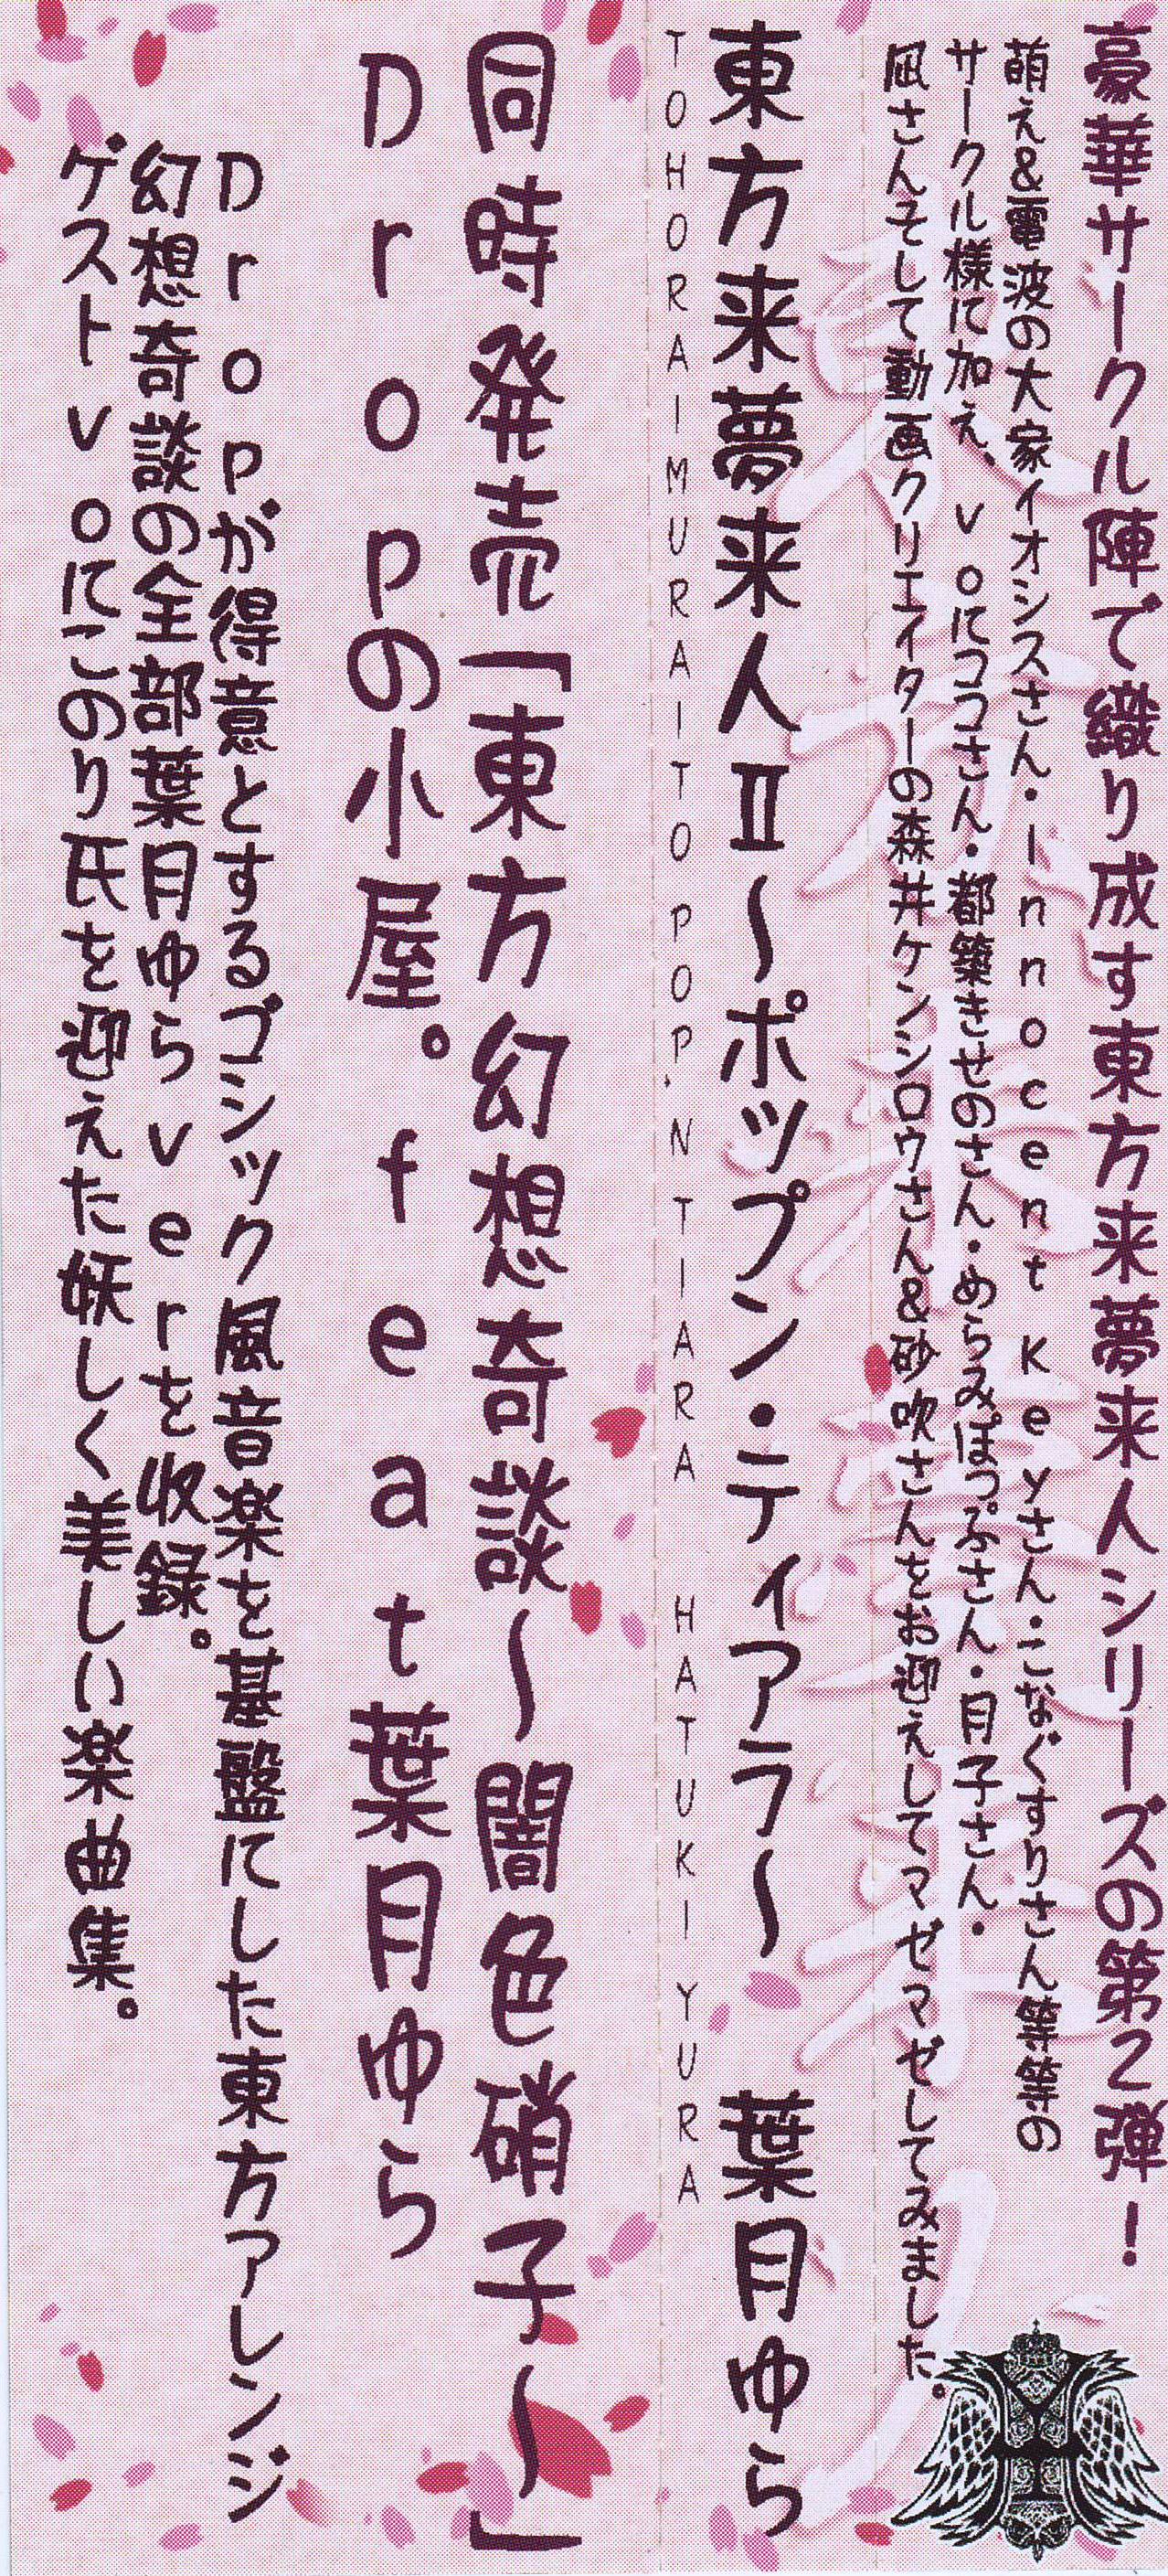 豪華サークル陣で織り成す東方来夢来人シリーズの第2弾！
萌え&電波の大家イオシスさん・innocent keyさん・こなぐすりさん等等の
サークル様に加え、voにココさん・都築きせのさん・めらみぽっぷさん・月子さん・
凪さんそして動画クリエイターの森井ケンシロウさん&砂吹さんをお迎えしてマゼマゼしてみました。
東方来夢来人Ⅱ～ポップン・ティアラ～ 葉月ゆら
TOHORAIMURAITO POP'N TIARA HATUKI YURA
同時発売「東方 幻想奇談～闇色硝子～」
Dropの小屋。 feat葉月ゆら
Dropが得意とするゴシック風音楽を基盤にした東方アレンジ
幻想奇談の全部葉月ゆらverを収録。
ゲストvoにこのり氏を迎えた妖しく美しい楽曲集。